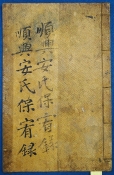 順興安氏保宥錄
順興安氏保宥錄